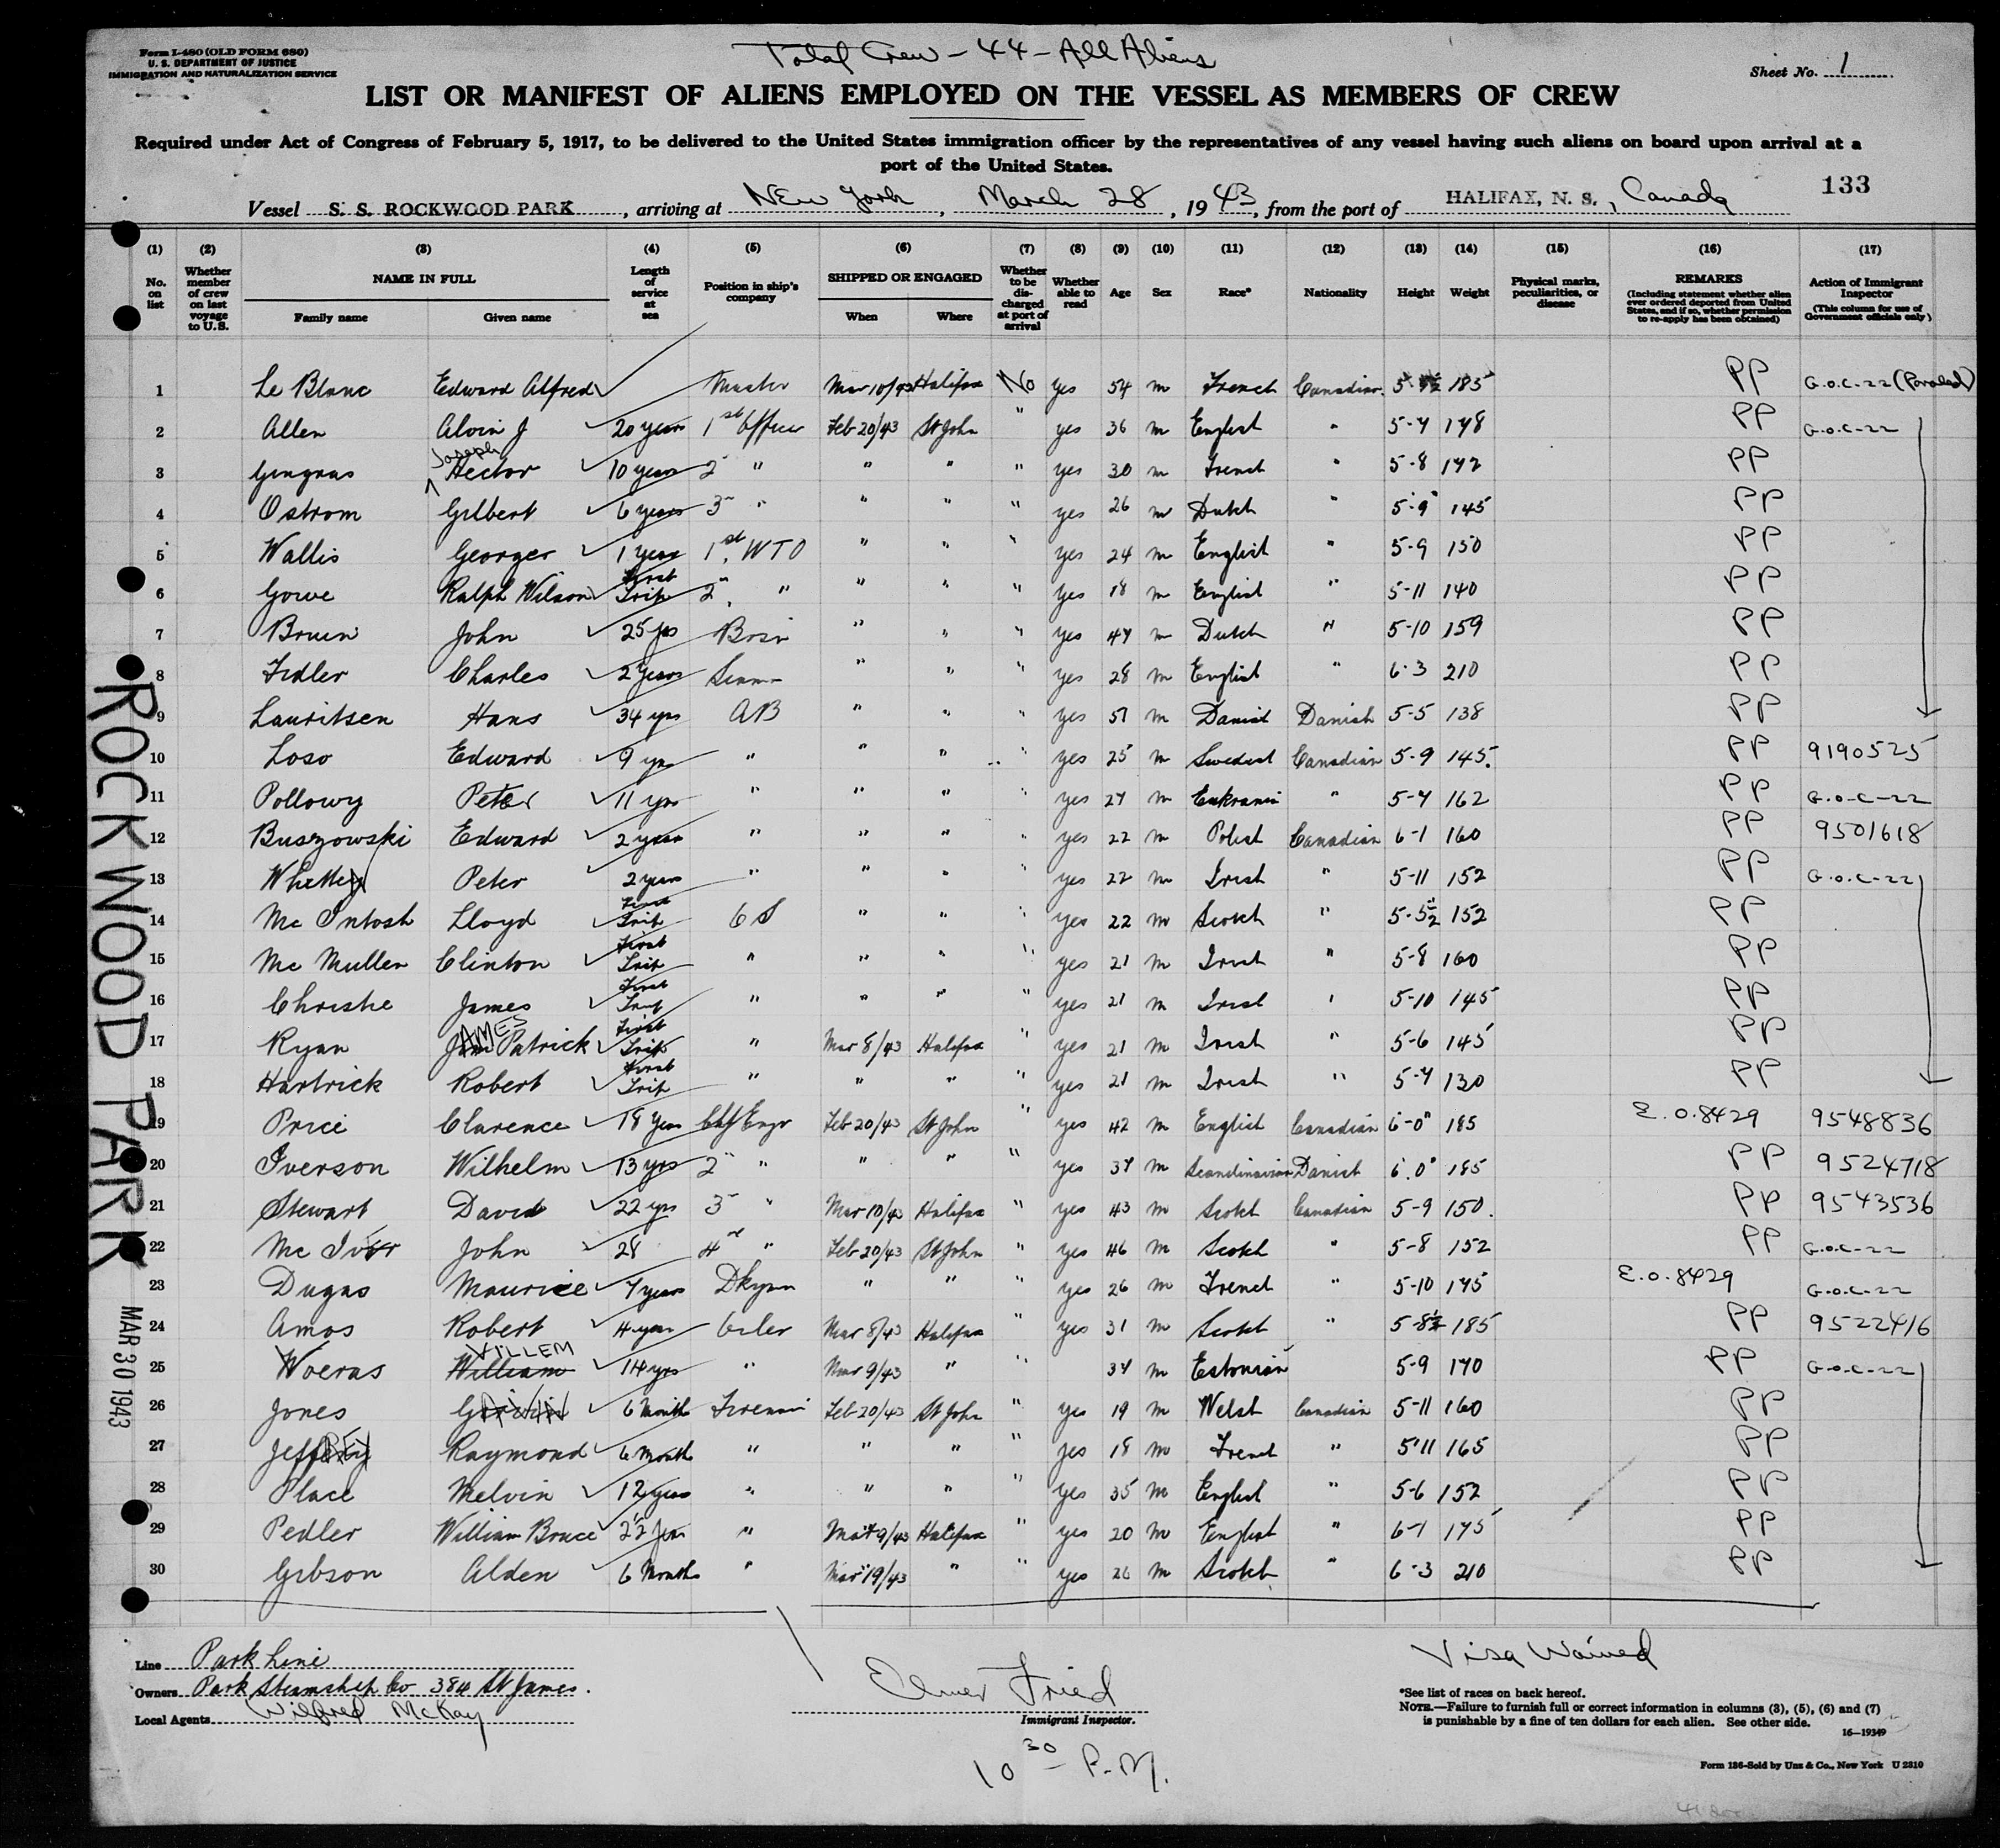 Form I-480 (OLD FORM 680)
U. S. DEPARTMENT OF JUSTICE
IMMIGRATION AND NATURALIZATION SERVICE
Total Crew - 44 - All Aliens
Sheet No. 1
LIST OR MANIFEST OF ALIENS EMPLOYED ON THE VESSEL AS MEMBERS OF CREW
Required under Act of Congress of February 5, 1917, to be delivered to the United States immigration officer by the representatives of any vessel having such aliens on board upon arrival at a
port of the United States.
133
Vessel S. S. ROCKWOOD PARK, arriving at New York, March 28, 1943, from the port of HALIFAX, N. S., Canada
(1) (2) (3) (4) (5) (6) (7) (8) (9) (10) (11) (12) (13) (14) (15) (16) (17)
No. on list Whether member of crew on last voyage to U.S. NAME IN FULL Family name Given name Length of service at sea Position in ship's company SHIPPED OR ENGAGED When Where Whether to be discharged at port of arrival Whether able to read Age Sex Race* Nationality Height Weight Physical marks, peculiarities, or disease REMARKS (Including statement whether alien ever ordered deported from United States, and if so, whether permission to re-apply has been obtained) Action of Immigrant Inspector (This column for use of Government officials only)
1 Le Blanc Edward Alfred Master Mar 10/43 Halifax No yes 54 m French Canadian 185 PP G.O.C-22 (Paroled)
2 Allen Alvin J 20 years 1st Officer Feb 20/43 St John " yes 36 m English " 5-7 148 PP G.O.C-22
3 Gingras Joseph Hector 10 years 2 " " " " yes 30 m French " 5-8 142 PP
4 Ostrom Gilbert 6 years 3 " " " " yes 26 m Dutch " 5-9 145 PP
5 Wallis George 1 year 1st WTO " " " yes 24 m English " 5-9 150 PP
6 Gowe Ralph Wilson First Trip 2 " " " " yes 18 m English " 5-11 140 PP
7 Bruin John 25 yrs Bosn " " " yes 47 m Dutch " 5-10 159 PP
8 Fidler Charles 2 years " " yes 28 m English " 6-3 210 PP
9 Lauritsen Hans 34 yrs AB " " " yes 51 m Danish Danish 5-5 138 PP
10 Loso Edward 9 yrs " " " " yes 25 m Swedish Canadian 5-9 145 PP 9190525
11 Pollowy Peter 11 yrs " " " " yes 27 m Eukranin " 5-7 162 PP G.O.C-22
12 Buszowski Edward 2 years " " " " yes 22 m Polish Canadian 6-1 160 PP 9501618
13 Peter 2 years " " " " yes 22 m Irish " 5-11 152 PP G.O.C-22
14 Mc Intosh Lloyd First Trip " " " yes 22 m Scotch " 5-5½ 152 PP
15 Mc Mullen Clinton First Trip " " " " yes 21 m Irish " 5-8 160 PP
16 Christie James First Trip " " " " yes 21 m Irish " 5-10 145 PP
17 Ryan JAMES Patrick First Trip " Mar 8/43 Halifax " yes 21 m Irish " 5-6 145 PP
18 Hartrick Robert First Trip " " " " yes 21 m Irish " 5-7 130 PP
19 Price Clarence 18 Years Chf Engr Feb 20/43 St John " yes 42 m English Canadian 6-0" 185 E.O.8429 9548836
20 Iverson Wilhelm 13 yrs 2 " " " " yes 37 m Scandinavian Danish 6.0" 185 PP 9524718
21 Stewart David 22 yrs 3 " Mar 10/43 Halifax " yes 43 m Scotch Canadian 5-9 150. PP 9543536
22 Mc Iver John 28 4 " Feb 20/43 St John " yes 46 m Scotch " 5-8 152 PP G.O.C-22
23 Dugas Maurice 7 years Dkymn " " " yes 26 m French " 5-10 175 E.O.8429 G.O.C-22
24 Amos Robert 4 year Oiler Mar 8/43 Halifax " yes 31 m Scotch " 5-8½ 185 PP 9522416
25 Woeras William VILLEM 14 yrs " Mar 9/43 " " 37 m Estonian 5-9 170 PP G.O.C-22
26 Jones 6 Months Fireman Feb 20/43 St John " yes 19 m Welsh Canadian 5-11 160 PP
27 JeffREY Raymond 6 Month " " " " yes 18 m French " 5'11 165 PP
28 Place Melvin 12 years " " " " yes 35 m English " 5-6 152 PP
29 Pedler William Bruce " Mar 9/43 Halifax " yes 20 m English " 6-1 175 PP
30 Gibson Alden 6 Months " Mar 19/43 " " yes 26 m Scotch " 6-3 210 PP
ROCKWOOD PARK
MAR 30 1943
Line Park Line
Owners Park Steamship Co 384 St James.
Local Agents Wilfred McKay
Elmer Fried
Immigrant Inspector.
10 30 P.M.
Visa Waived
*See list of races on back hereof.
NOTE.—Failure to furnish full or correct information in columns (3), (5), (6) and (7)
is punishable by a fine of ten dollars for each alien. See other side.
16—19349
Form 136-Sold by Unz & Co., New York U 2310